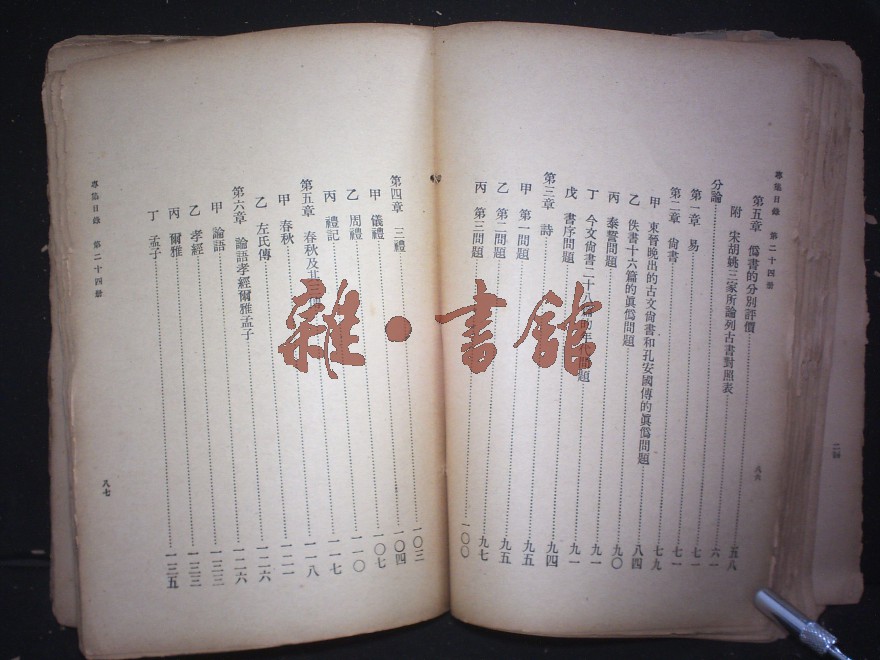 專集目錄 第二十四册
第五章 僞書的分別評價……五八
附 宋胡姚三家所論列古書對照表……六一
分論……七一
第一章 易……七一
第二章 尙書……七九
甲 東晉晚出的古文尙書和孔安國傳的眞僞問題……八四
乙 佚書十六篇的眞僞問題……九〇
丙 泰誓問題……九一
丁 今文尙書二十八篇的年代問題……九一
戊 書序問題……九四
第三章 詩……九五
甲 第一問題……九五
乙 第二問題……九七
丙 第三問題……一〇〇
八六
第四章 三禮……一〇三
甲 儀禮……一〇四
乙 周禮……一〇七
丙 禮記……一一〇
第五章 春秋及其三傳……一一七
甲 春秋……一一八
乙 左氏傳……一二一
第六章 論語孝經爾雅孟子……一二六
甲 論語……一二六
乙 孝經……一三三
丙 爾雅……一三三
丁 孟子……一三五
專集目錄 第二十四册
八七
雜・書館